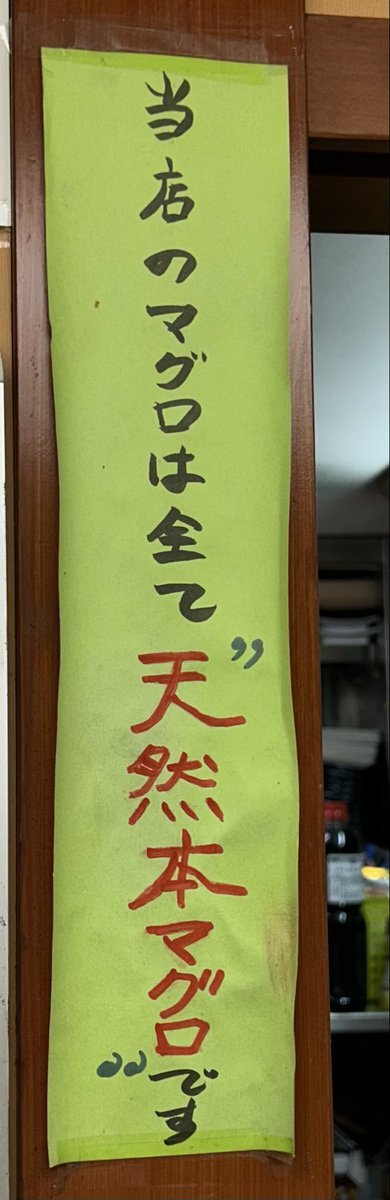 当店のマグロは全て”天然本マグロ“です